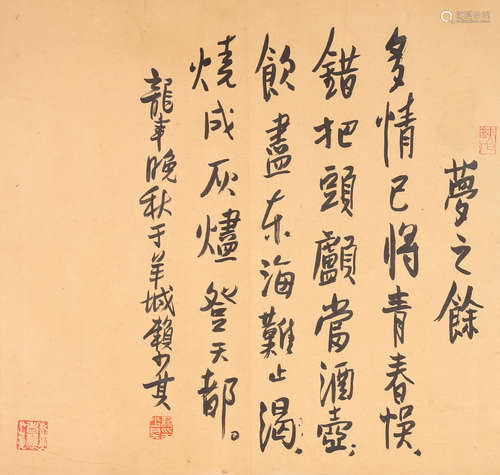 夢之餘
多情已將青春悞、
錯把頭顱當酒壺、
飲盡東海難止渴、
燒成灰燼登天都。
龍年晚秋于羊城賴少其